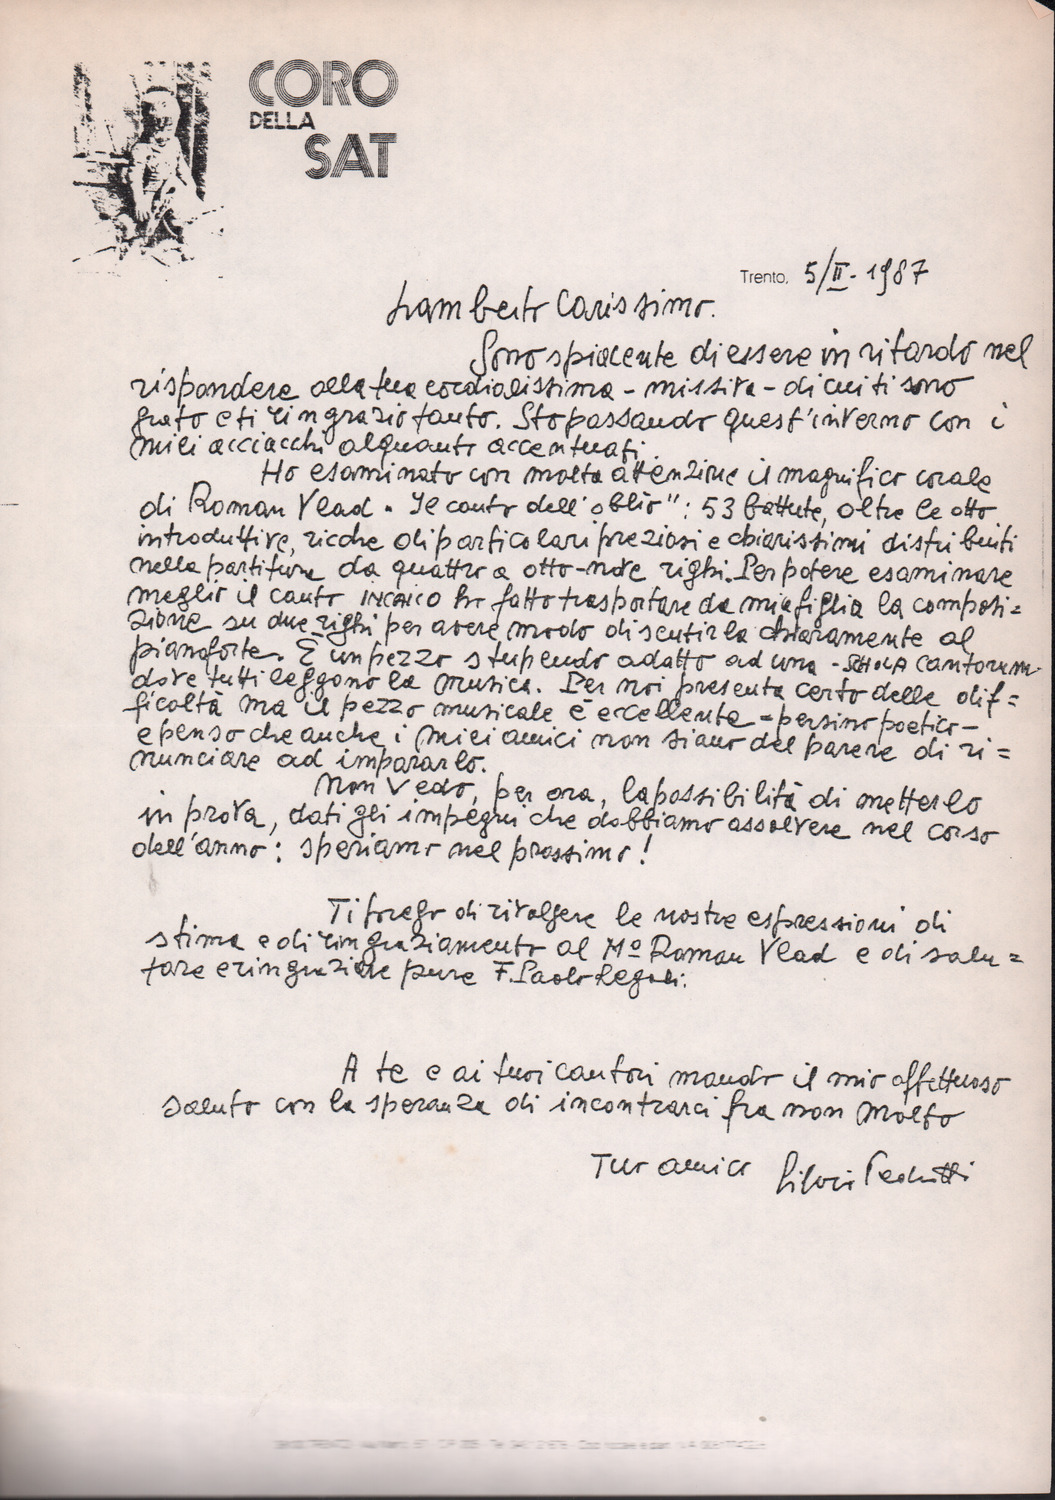 CORO
DELLA
SAT
Trento, 5/II-1987
Lamberto Carissimo.
Sono spiacente di essere in ritardo nel
rispondere alla tua cordialissima - missiva - di cui ti sono
grato e ti ringrazio tanto. Sto passando quest'inverno con i
miei acciacchi alquanto accentuati.
Ho esaminato con molta attenzione il magnifico corale
di Roman Vlad "Il canto dell'oblio": 53 battute, oltre le otto
introduttive, ricche di particolari preziosi e chiarissimi distribuiti
nella partitura da quattro a otto-nove righi. Per potere esaminare
meglio il canto INCAICO ho fatto trasportare da mia figlia la composi=
zione su due righi per avere modo di sentirla chiaramente al
pianoforte. È un pezzo stupendo adatto ad una - SCHOLA cantorum -
dove tutti leggono la musica. Per noi presenta certo delle dif=
ficoltà ma il pezzo musicale è eccellente - persino poetico -
e penso che anche i miei amici non siano del parere di ri=
nunciare ad impararlo.
Non vedo, per ora, la possibilità di metterlo
in prova, dati gli impegni che dobbiamo assolvere nel corso
dell'anno: speriamo nel prossimo!
Ti prego di rivolgere le nostre espressioni di
stima e di ringraziamento al Mº Roman Vlad e di salu=
tare e ringraziare pure F. Paolo Regoli.
A te e ai tuoi cantori mando il mio affettuoso
saluto con la speranza di incontrarci fra non molto
Tuo amico Silvio Pedrotti